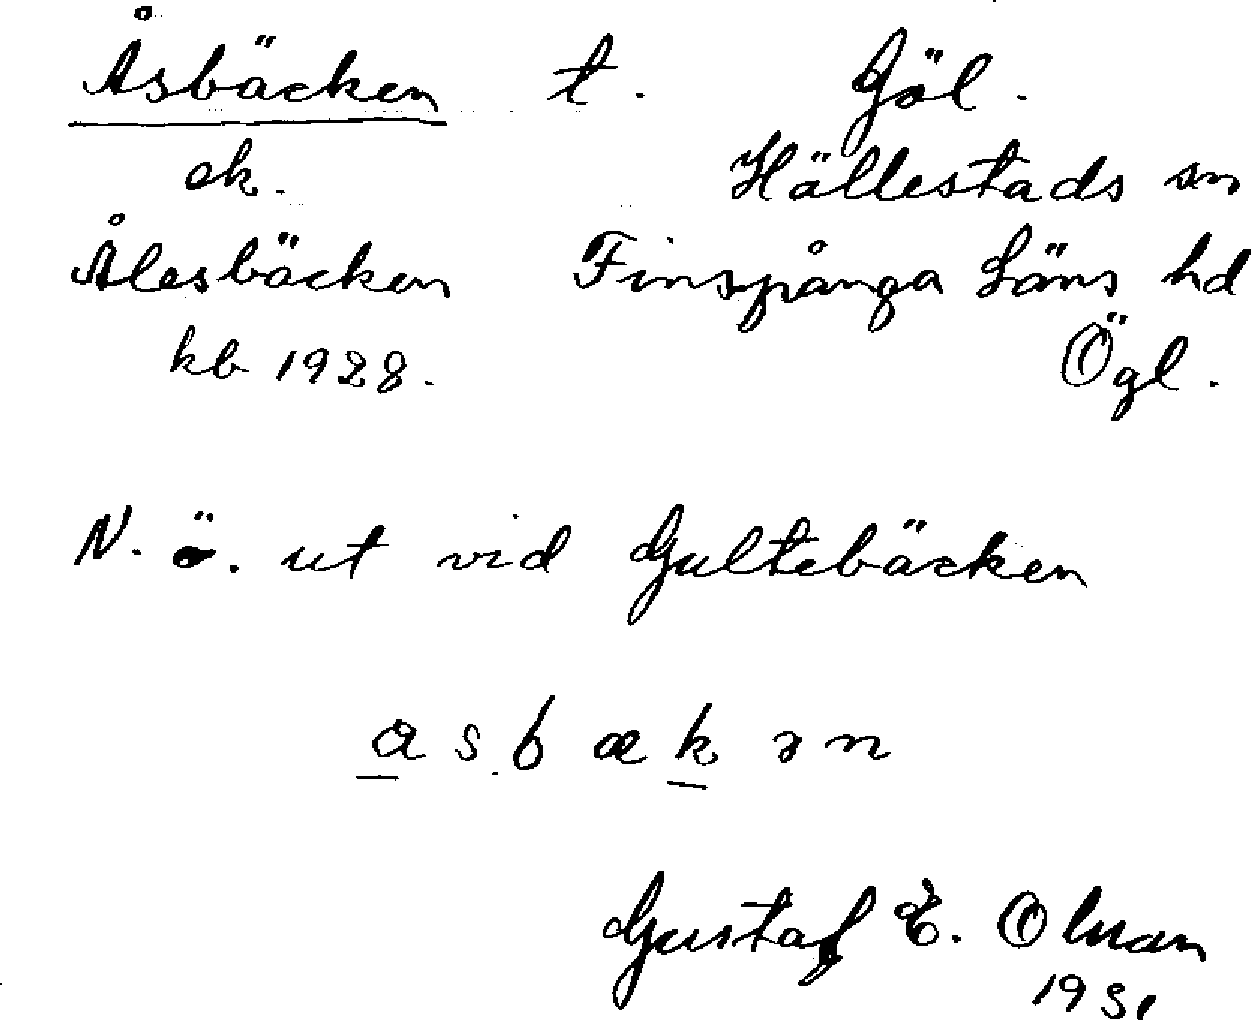 Åsbäcken t. Göl.
ek. Hällestads sn
Ålesbäcken Finspånga Läns hd
kb 1928. Ögl.
N. ö. ut vid Gultebäcken
a s b æ k ə n
Gustaf E. Olsson
1931